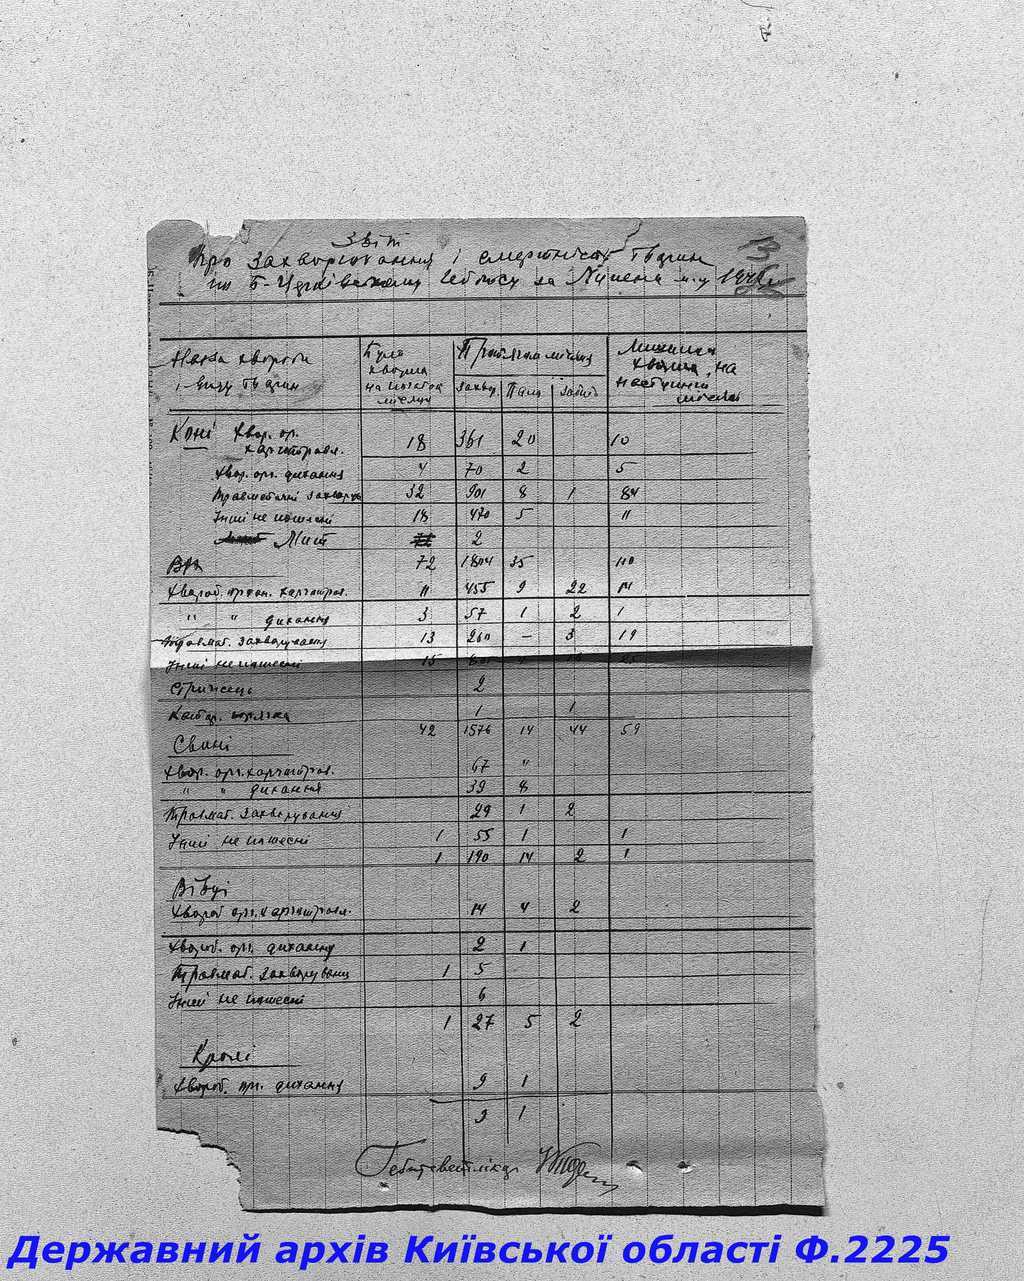 Звіт
Про захворювання і смертність тварин
по Б-Церківському Гебітсу за Липень м-ць
Назва хвороби і виду тварин
Було хворих на початок місяця
Протягом місяця
захвор. Пало Забито
Лишилось хворих на наступний місяць
Коні Хвор. ор. харчотравл. 18 361 20 10
Хвор. орг. дихання 4 70 2 5
Травматичні захворюв 32 901 8 1 84
Інші не пошесні 18 470 5 11
Мит 2
72 1804 35 110
ВРХ
Хвороб. орган. харчотрав. 11 455 9 22 14
" " дихання 3 57 1 2 1
Травмат. захворування 13 260 – 3 19
Інші не пошесні 15
Стригесць 2
Катар. горячка 1 1
42 1576 14 44 59
Свині
Хвор. орг. харчотрав. 67 "
" " дихання 39 8
Травмат. захворування 29 1 2
Інші не пошесні 1 55 1 1
1 190 14 2 1
Вівці
Хвороб орг. харчотравл. 14 4 2
Хвороб. орг. дихання 2 1
Травмат. захворуванн 1 5
Інші не пошесні 6
1 27 5 2
Кролі
Хвороб. орг. дихання 9 1
9 1
Гебітсветлікар
Державний архів Київської області Ф.2225